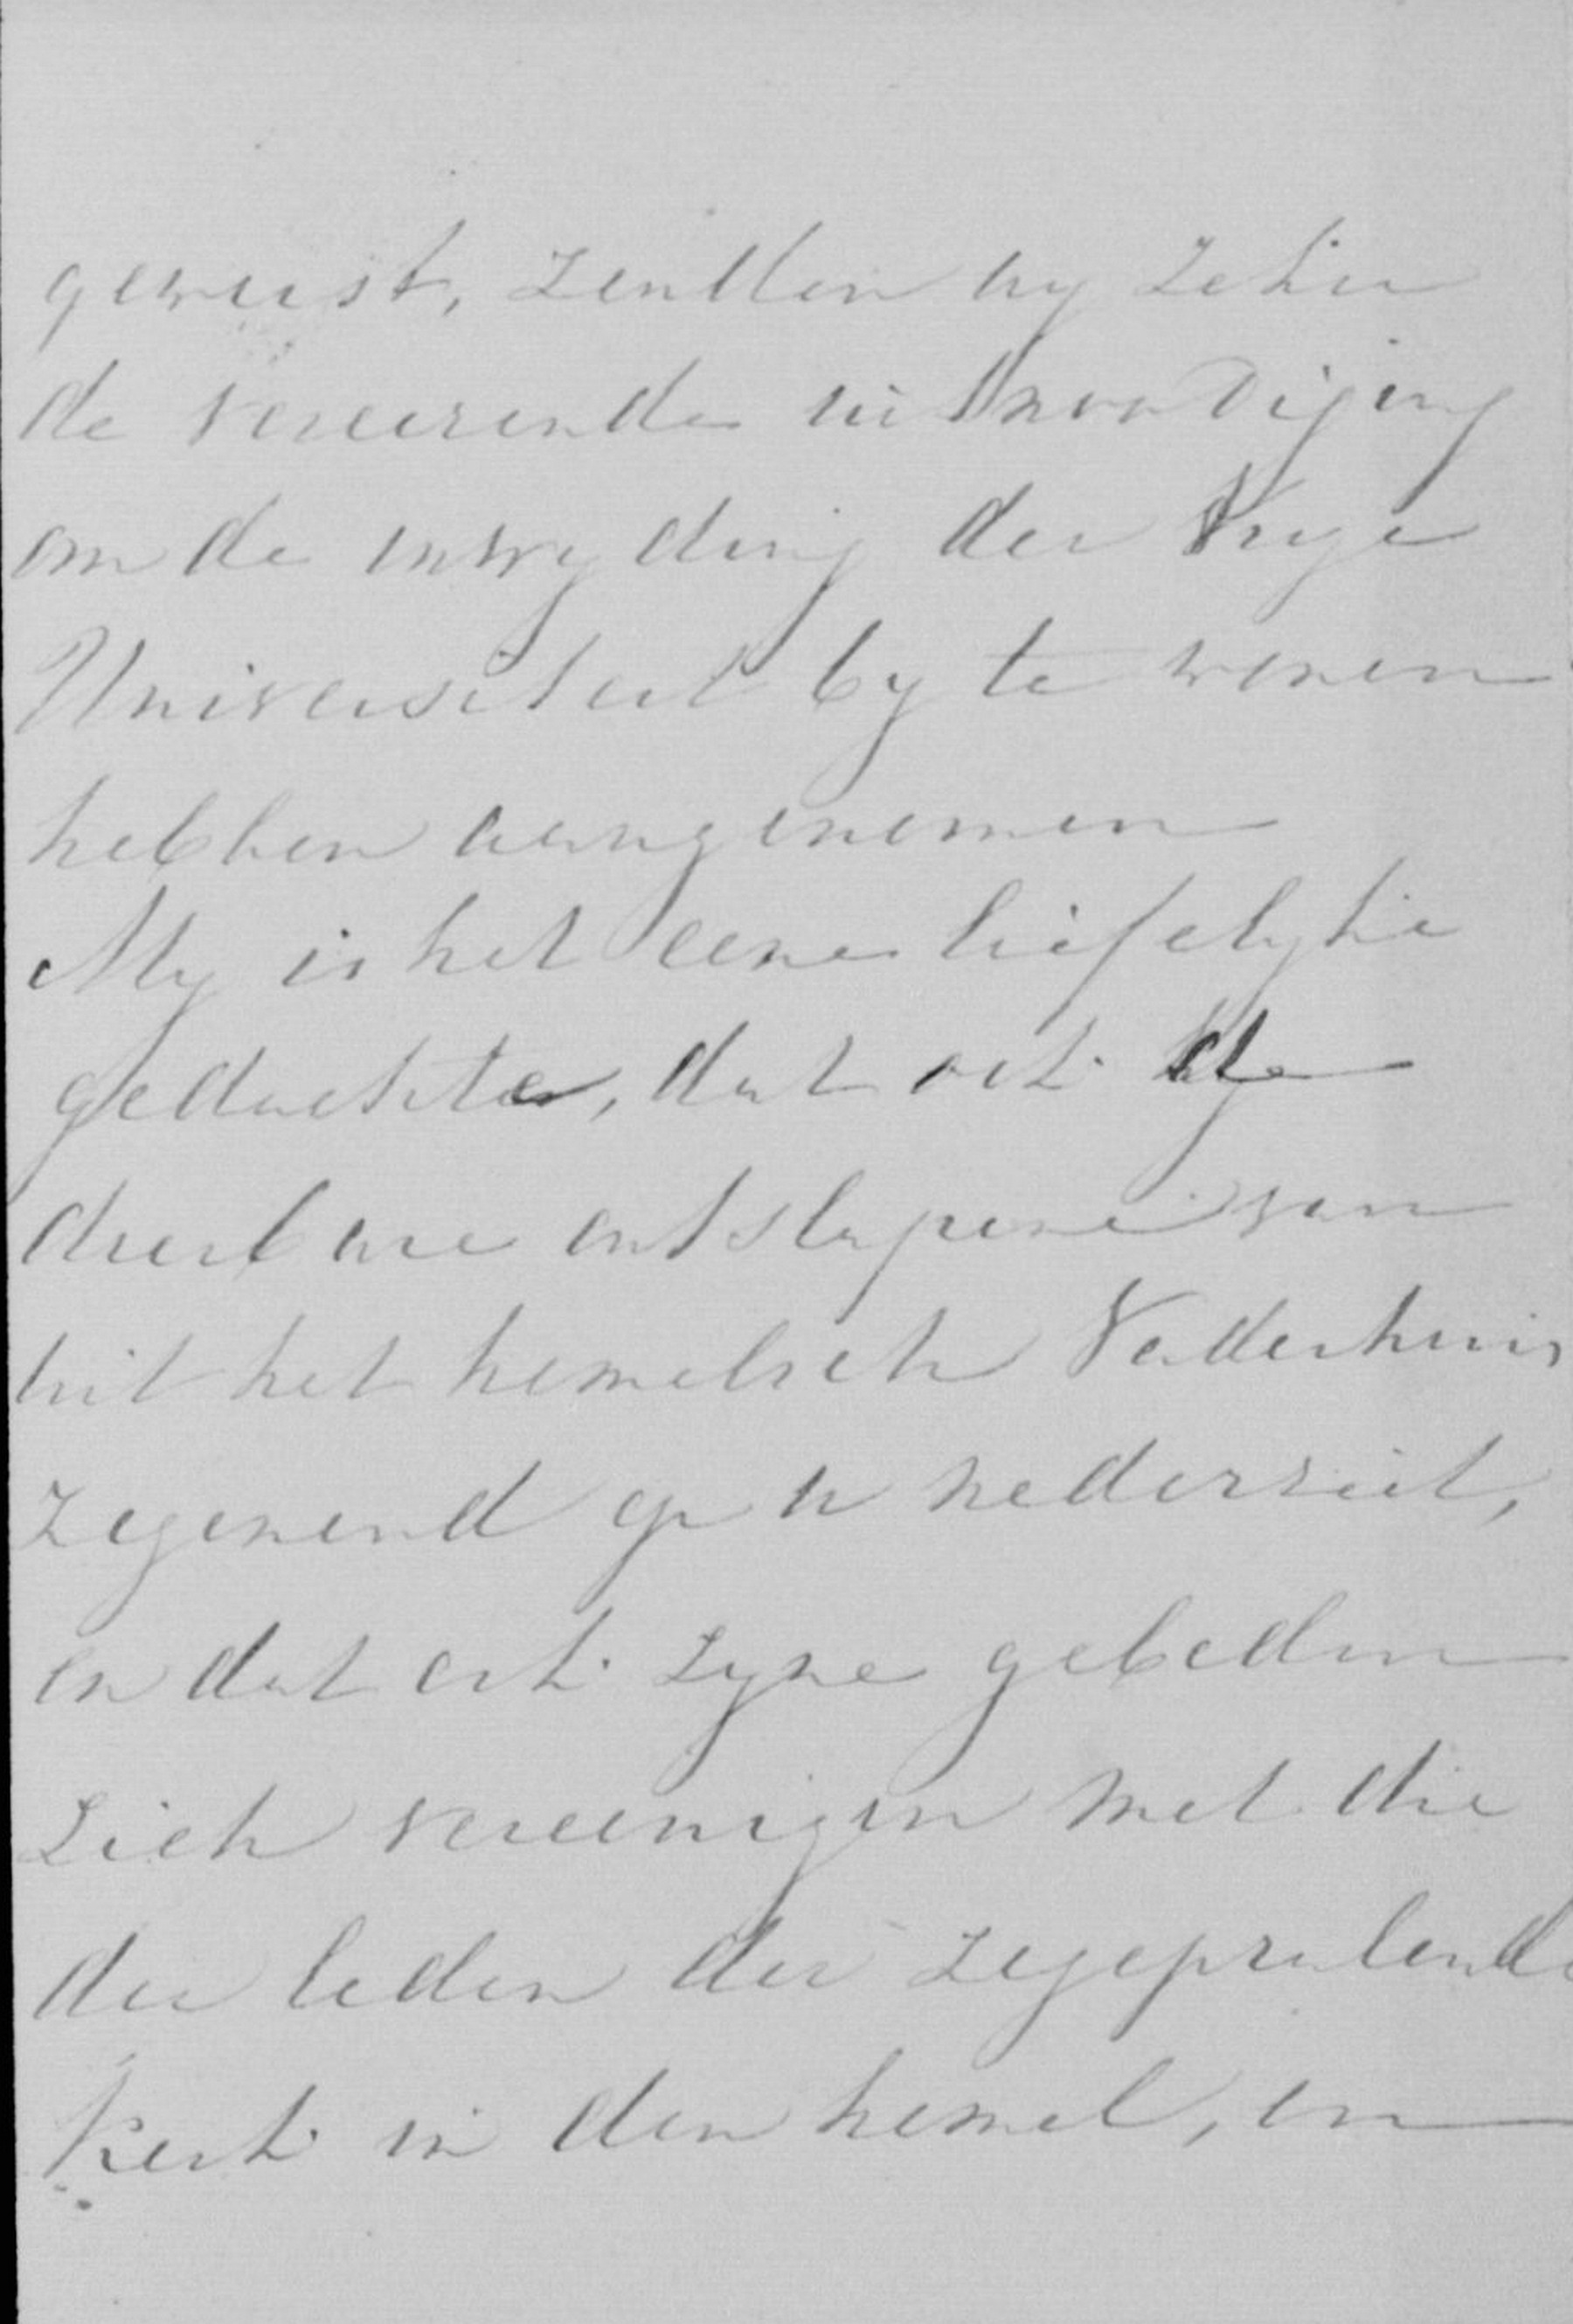 geweest, zoudden wy zeker
de vereerende uitnoodiging
om de inwyding der Vrye
Universiteit by te wonen
hebben aangenomen
My is het eene liefelyke
gedachte, dat ook de
dierbare ontslapene van
uit het hemelsch Vaderhuis
zegenend op U nederziet,
en dat ook zyne gebeden
zich vereenigen met die
der leden der zegepralende
Kerk in den hemel, en